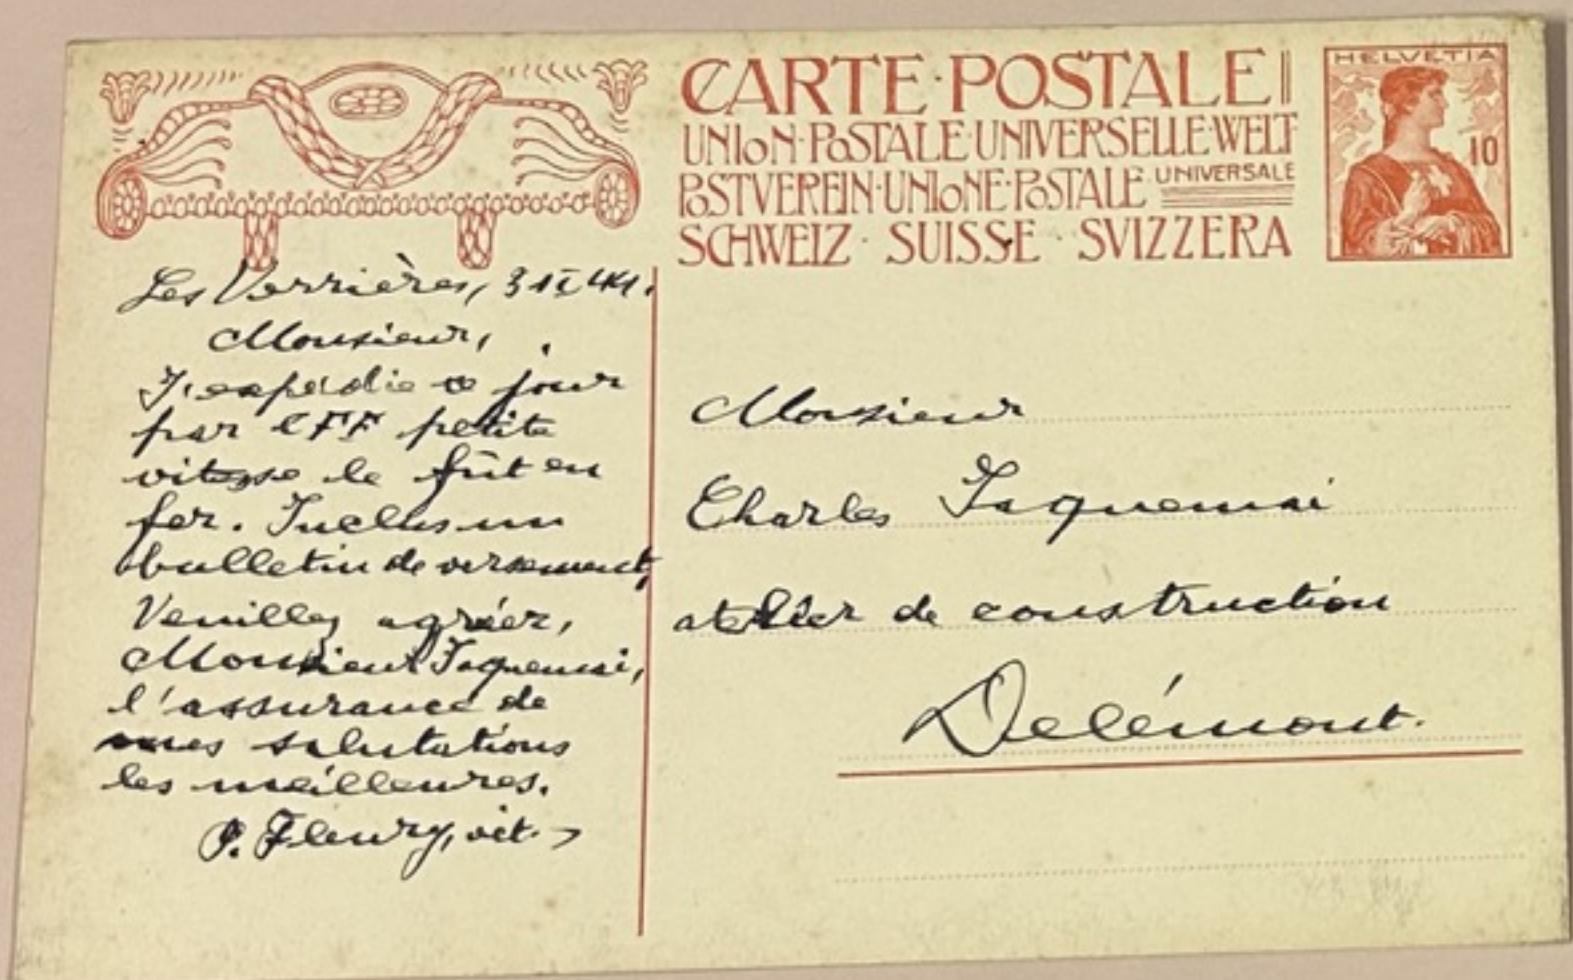 CARTE·POSTALE
UNION·POSTALE·UNIVERSELLE·WELT
POSTVEREIN·UNIONE·POSTALE·UNIVERSALE
SCHWEIZ · SUISSE · SVIZZERA
HELVETIA
10
Les Verrières,
Monsieur,
J'expédie ce jour
par CFF petite
vitesse le fût en
fer. Inclus un
bulletin de versement,
Veuillez agréer,
Monsieur Jaquemai,
l'assurance de
mes salutations
les meilleures.
P. Fleury, vét.
Monsieur
Charles Jaquemai
atelier de construction
Delémont.